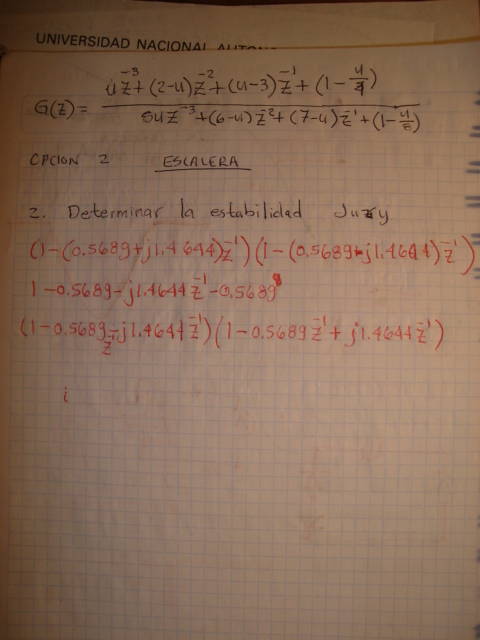 UNIVERSIDAD NACIONAL
uz⁻³+(2-u)z⁻²+(u-3)z⁻¹+(1-u/4)
G(z)=
5uz⁻³+(6-u)z⁻²+(7-u)z⁻¹+(1-u/5)
OPCION 2 ESCALERA
2. Determinar la estabilidad Jury
(1-(0.5689+j1.4644)z⁻¹)(1-(0.5689-j1.4644)z⁻¹)
1-0.5689-j1.4644z⁻¹-0.5689
(1-0.5689z⁻¹-j1.4644z⁻¹)(1-0.5689z⁻¹+j1.4644z⁻¹)
i